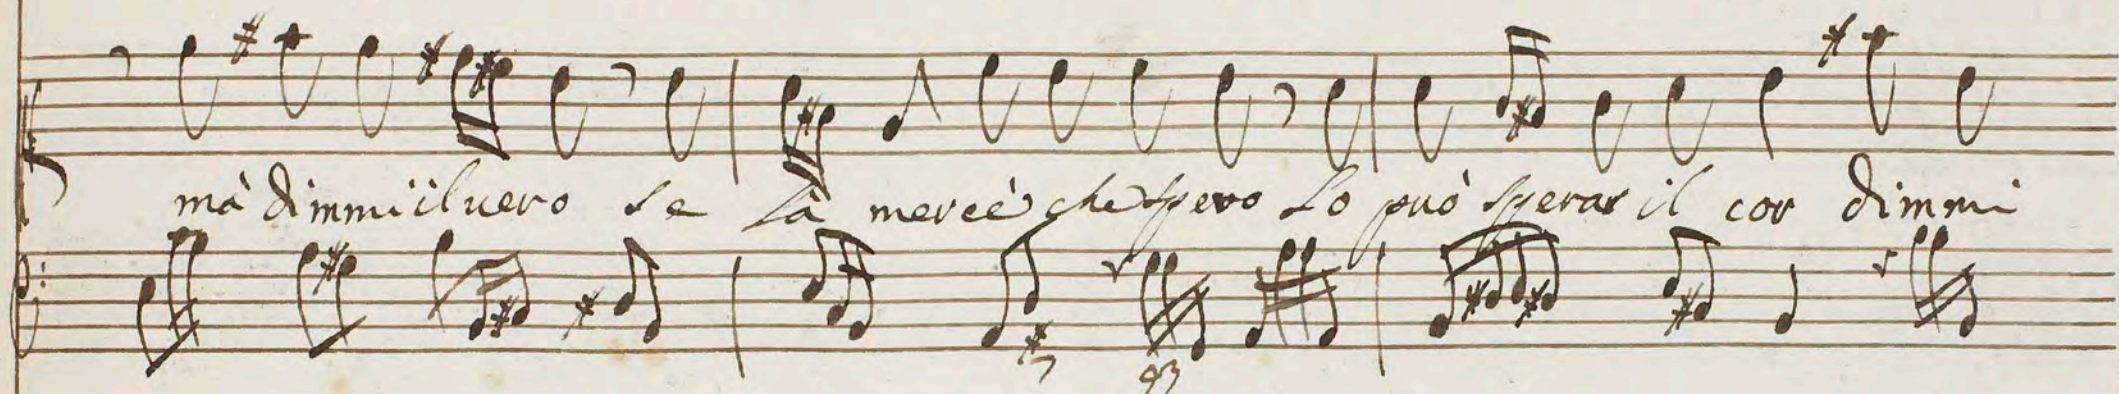 mà dimmi il uero se la mercè che spero Lo può sperar il cor dimmi
7
43